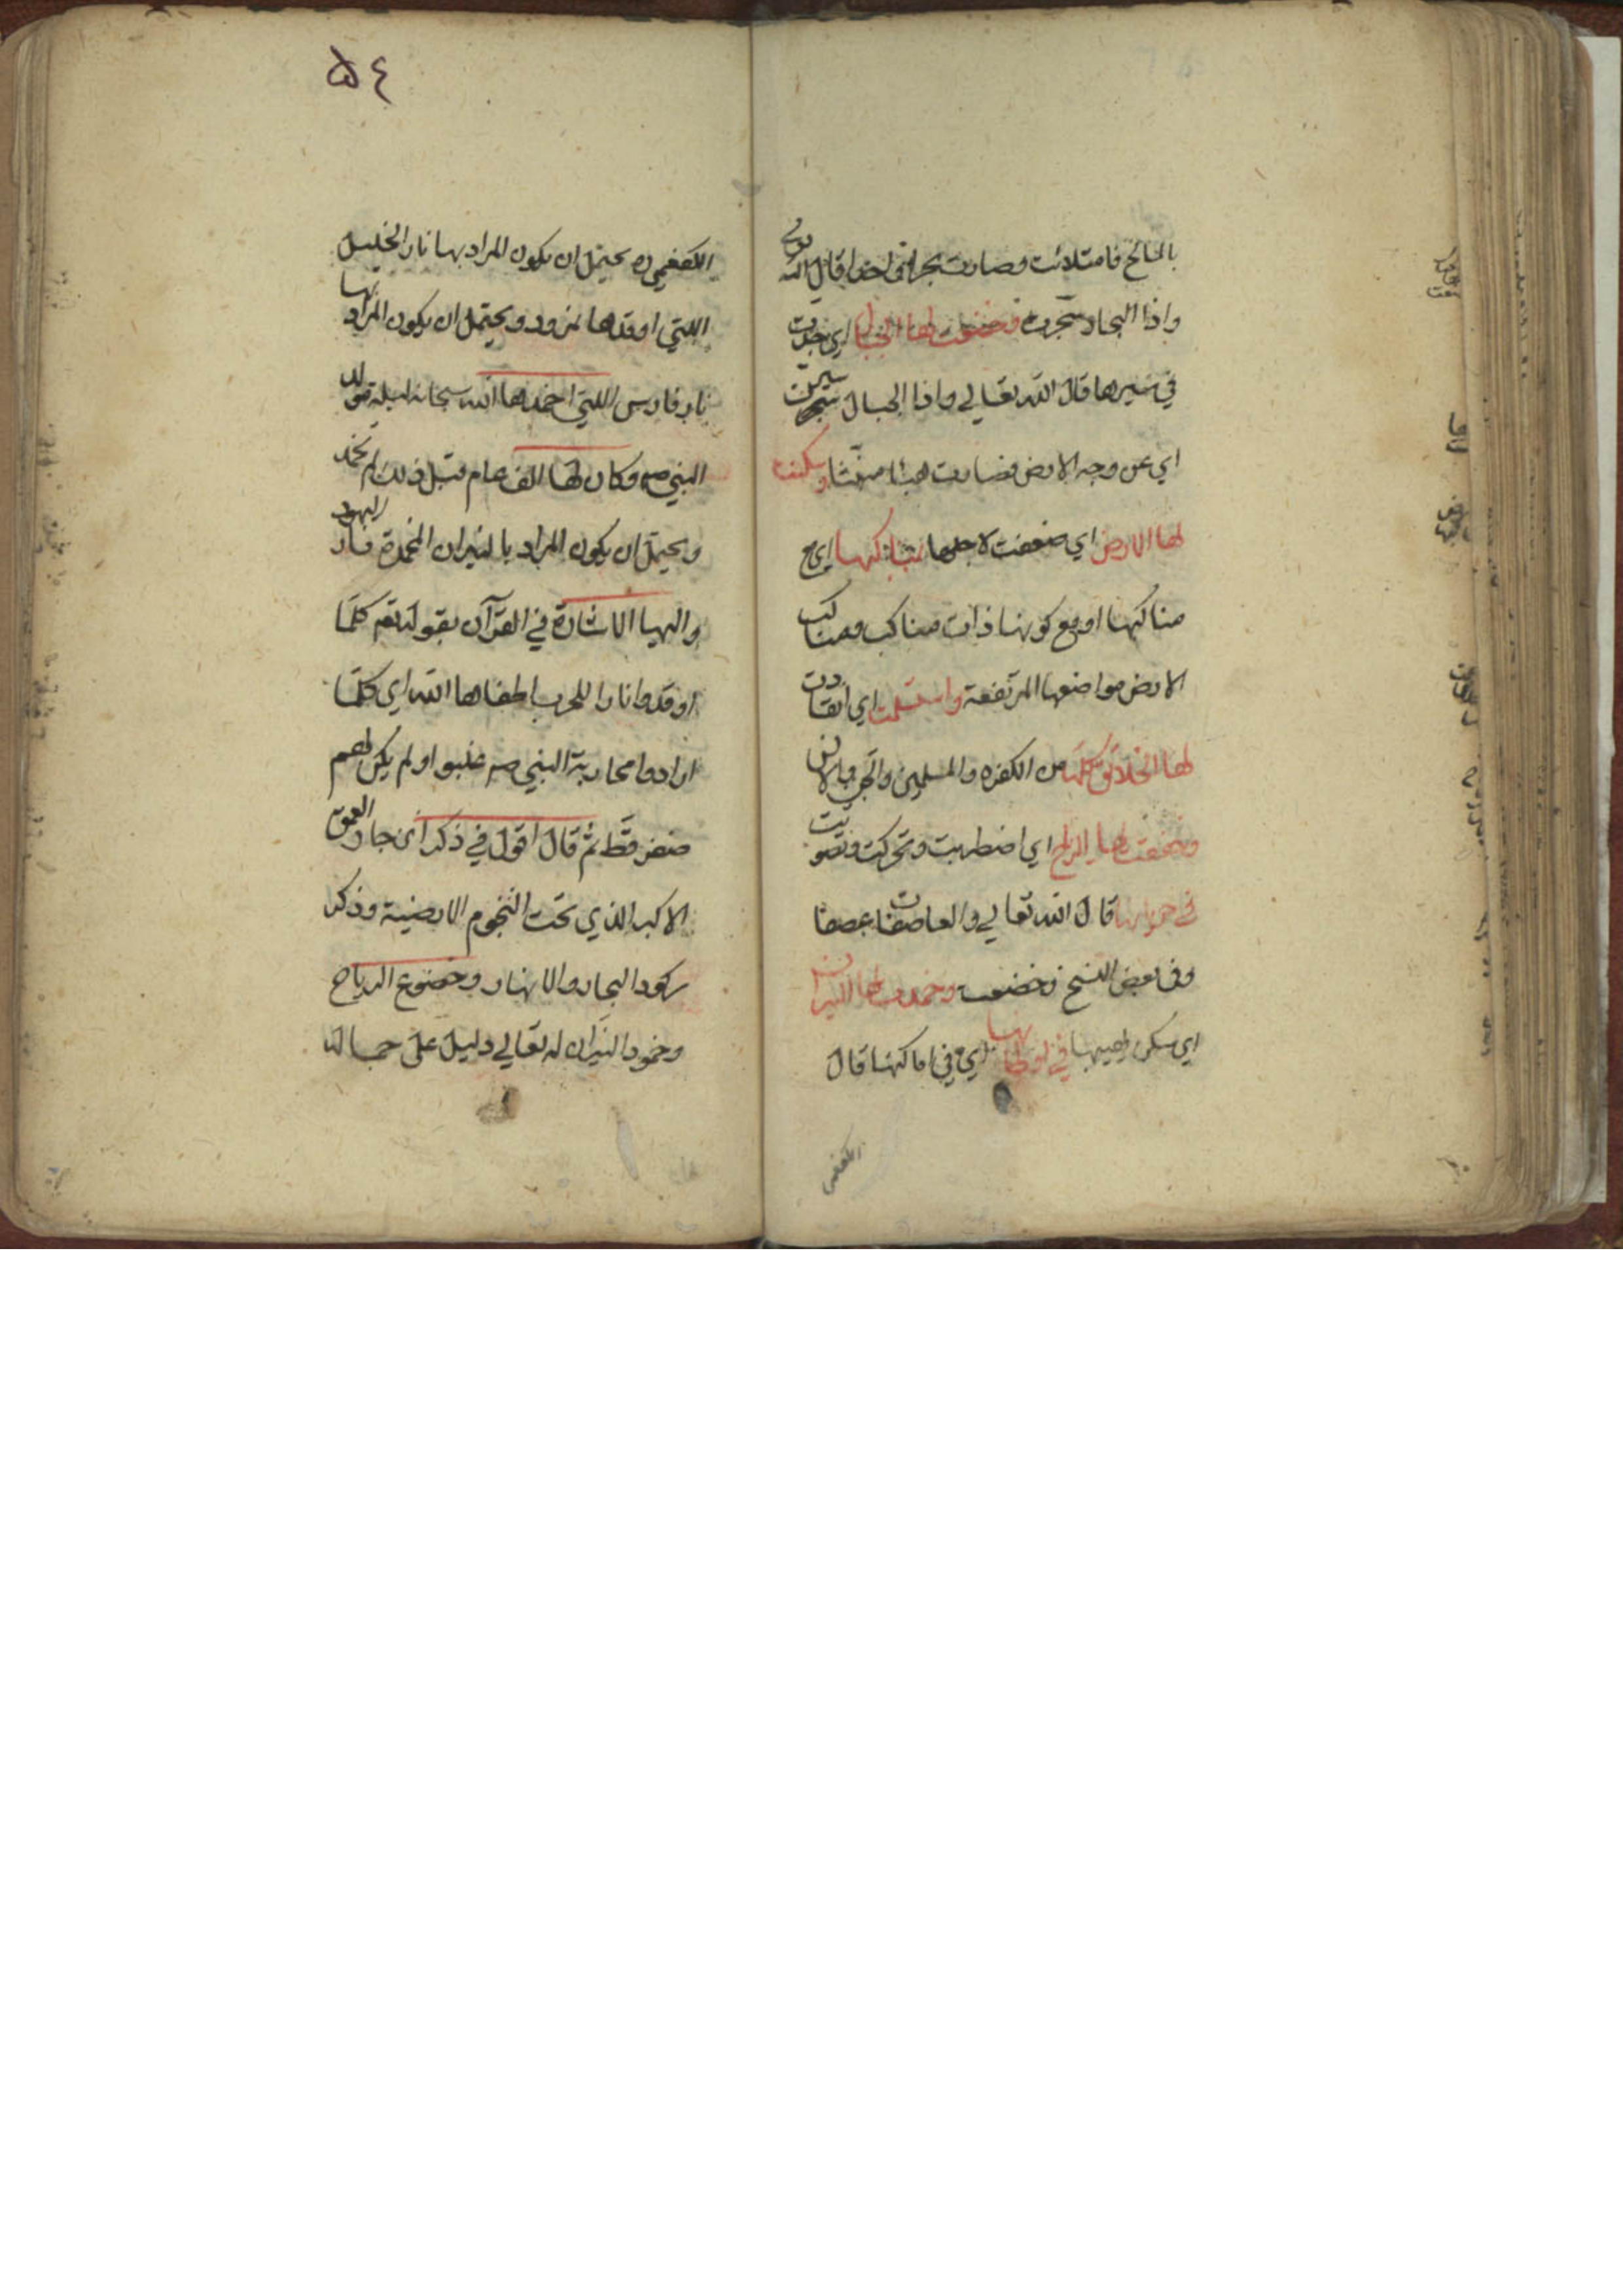 بالمائح فامتلائت وصارت بحرا اخرا قال الله تعالى
واذا البحار سجرت فخضعت لها الجبال اي خرت
في سيرها قال الله تعالى واذا الجبال سيرت
اي عن وجه الارض فصارت هباء منبثا وسكنت
لها الارض اي ضعفت لاجلها بمناكبها اي مع
مناكبها او مع كونها ذات مناكب ومناكب
الارض مواضعها المرتفعة واستسلمت اي انقادت
لها الخلائق كلها من الكفره والمسلمين والجن والانس
وخفقت لها الرياح اي اضطربت وتحركت وتصوتت
في جريانها قال الله تعالى والعاصفات عصفا
وفى بعض النسخ وخضعت وخمدت لها النيران
اي سكن لهيبها في اوطانها اي في اماكنها قال
الكفعمى
٥٤
الكفعمي ره يحتمل ان يكون المراد بها نار الخليل
اللتي اوقدها نمرود ويحتمل ان يكون المراد بها
نار فارس اللتي اخمدها الله سبحانه ليلة تولد
النبي صه وكان لها الف عام قبل ذلك لم تخمد
ويحتمل ان يكون المراد بالنيران المخمدة نار اليهود
واليها الاشارة في القرآن بقوله تعم كلما
اوقدوا نارا للحرب اطفاها الله اي كلما
ارادوا محاربة النبي صه غلبوا ولم يكن لهم
ضفر قط ثم قال اقول في ذكر انجار العمق
الاكبر الذي تحت التخوم الارضية وذكر
ركود البحار والانهار وخضوع الرياح
وخمود النيران له تعالى دليل على جبا له